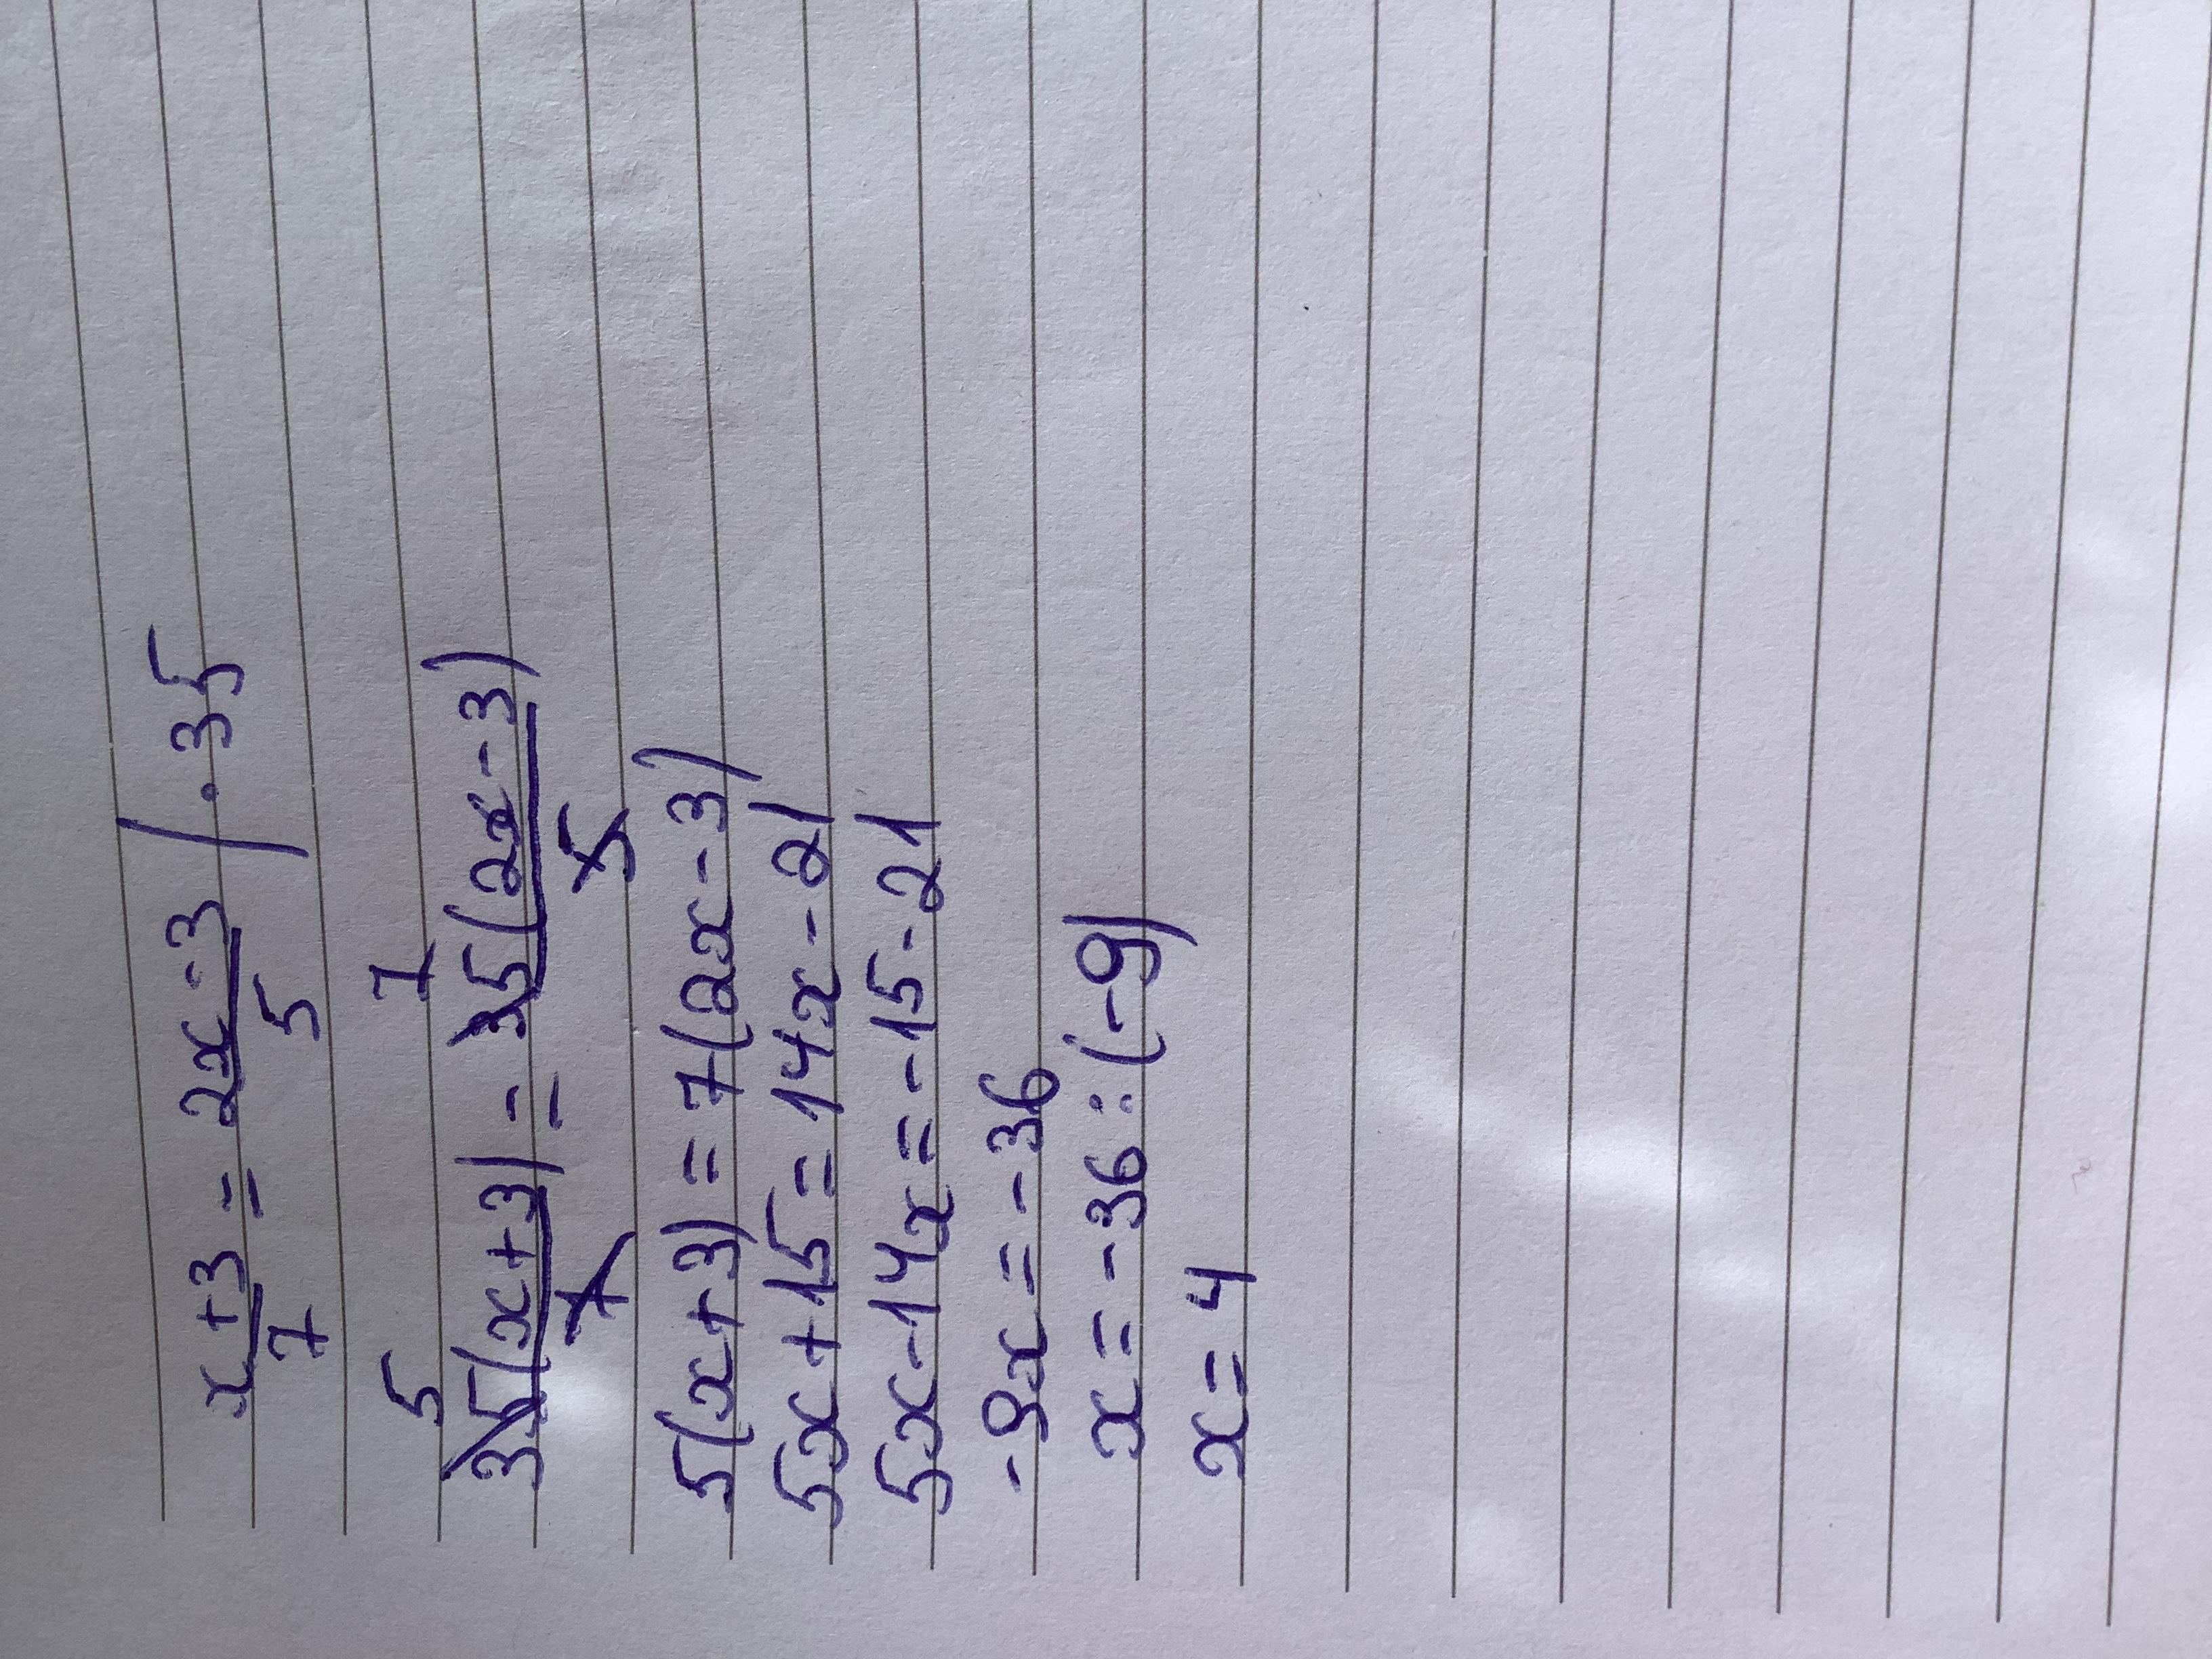 x+3/7 = 2x-3/5 | · 35
5 7
35(x+3)/7 = 35(2x-3)/5
5(x+3) = 7(2x-3)
5x+15=14x-21
5x-14x=-15-21
-9x=-36
x=-36:(-9)
x=4